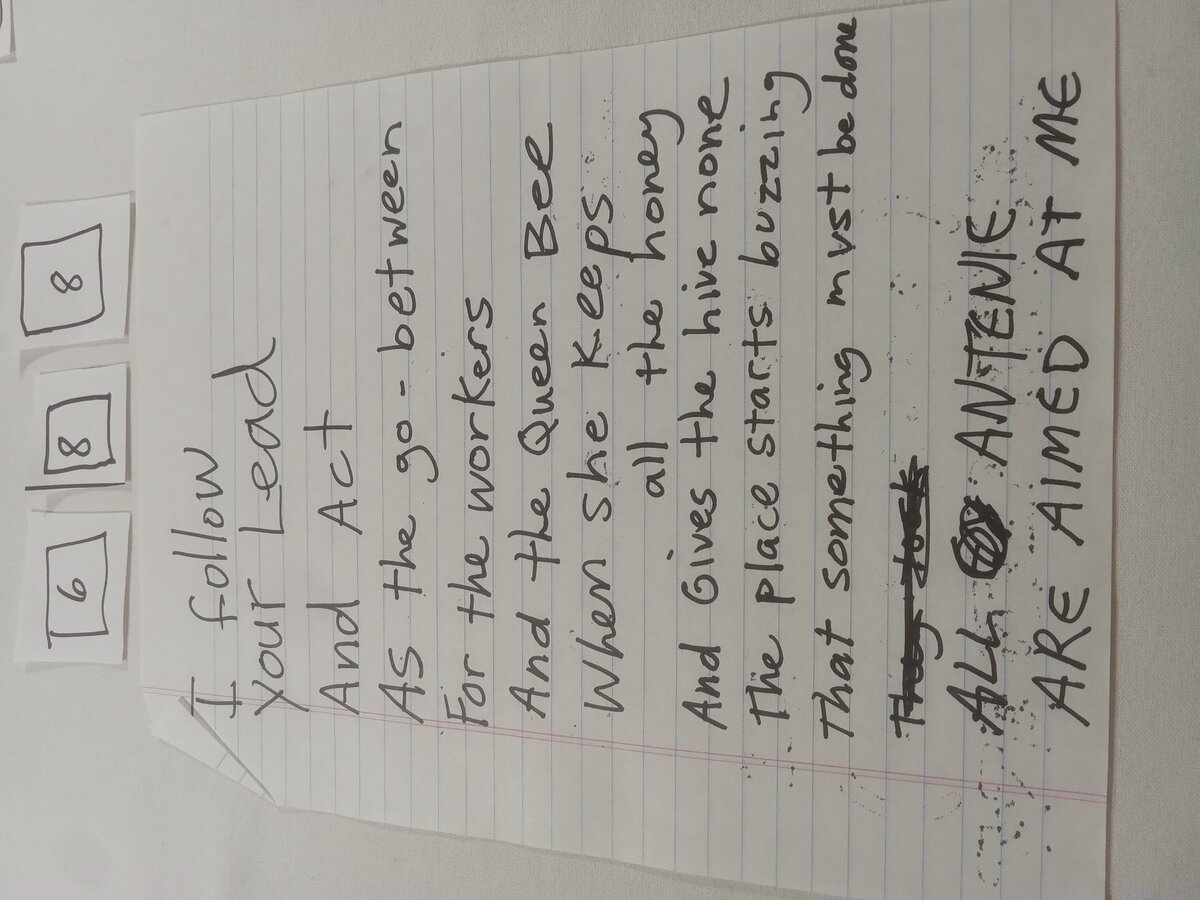 6 8 8
I follow
your Lead
And Act
As the go-between
For the workers
And the Queen Bee
When she keeps
all the honey
And Gives the hive none
The place starts buzzing
That something must be done
ALL ANTENIE
ARE AIMED AT ME